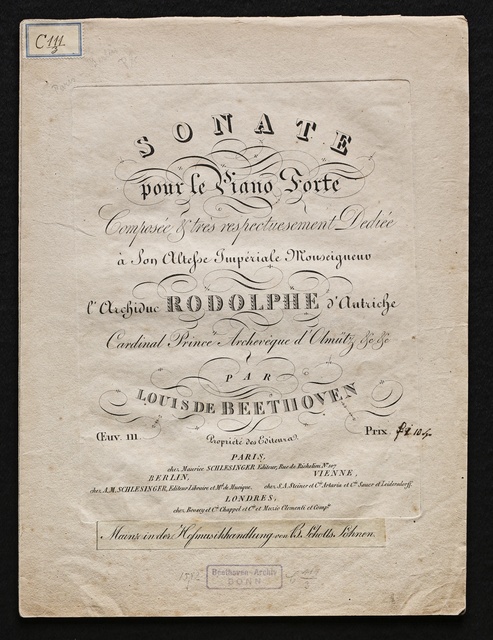 C 111
3
SONATE
pour le Piano Forte
Composée & très respectuesement Dediée
à Son Altesse Impériale Monseigneur
l'Archiduc RODOLPHE d'Autriche
Cardinal Prince Archevèque d'Olmütz &c &c
PAR
LOUIS DE BEETHOVEN
Œuv. 111. Propriété des Editeurs Prix.
PARIS,
chez Maurice SCHLESINGER Editeur, Rue de Richelieu No. 107
BERLIN, VIENNE,
chez A.M. SCHLESINGER, Editeur Libraire et Md. de Musique, chez S.A. Steiner et Ce. Artaria et Ce. Sauer et Leidersdorff.
LONDRES;
chez Boosey et Ce. Chappel et Ce. et Muzio Clementi et Compe.
Mainz in der Hofmusikhandlung von B. Schotts Söhnen.
Beethoven-Archiv
BONN